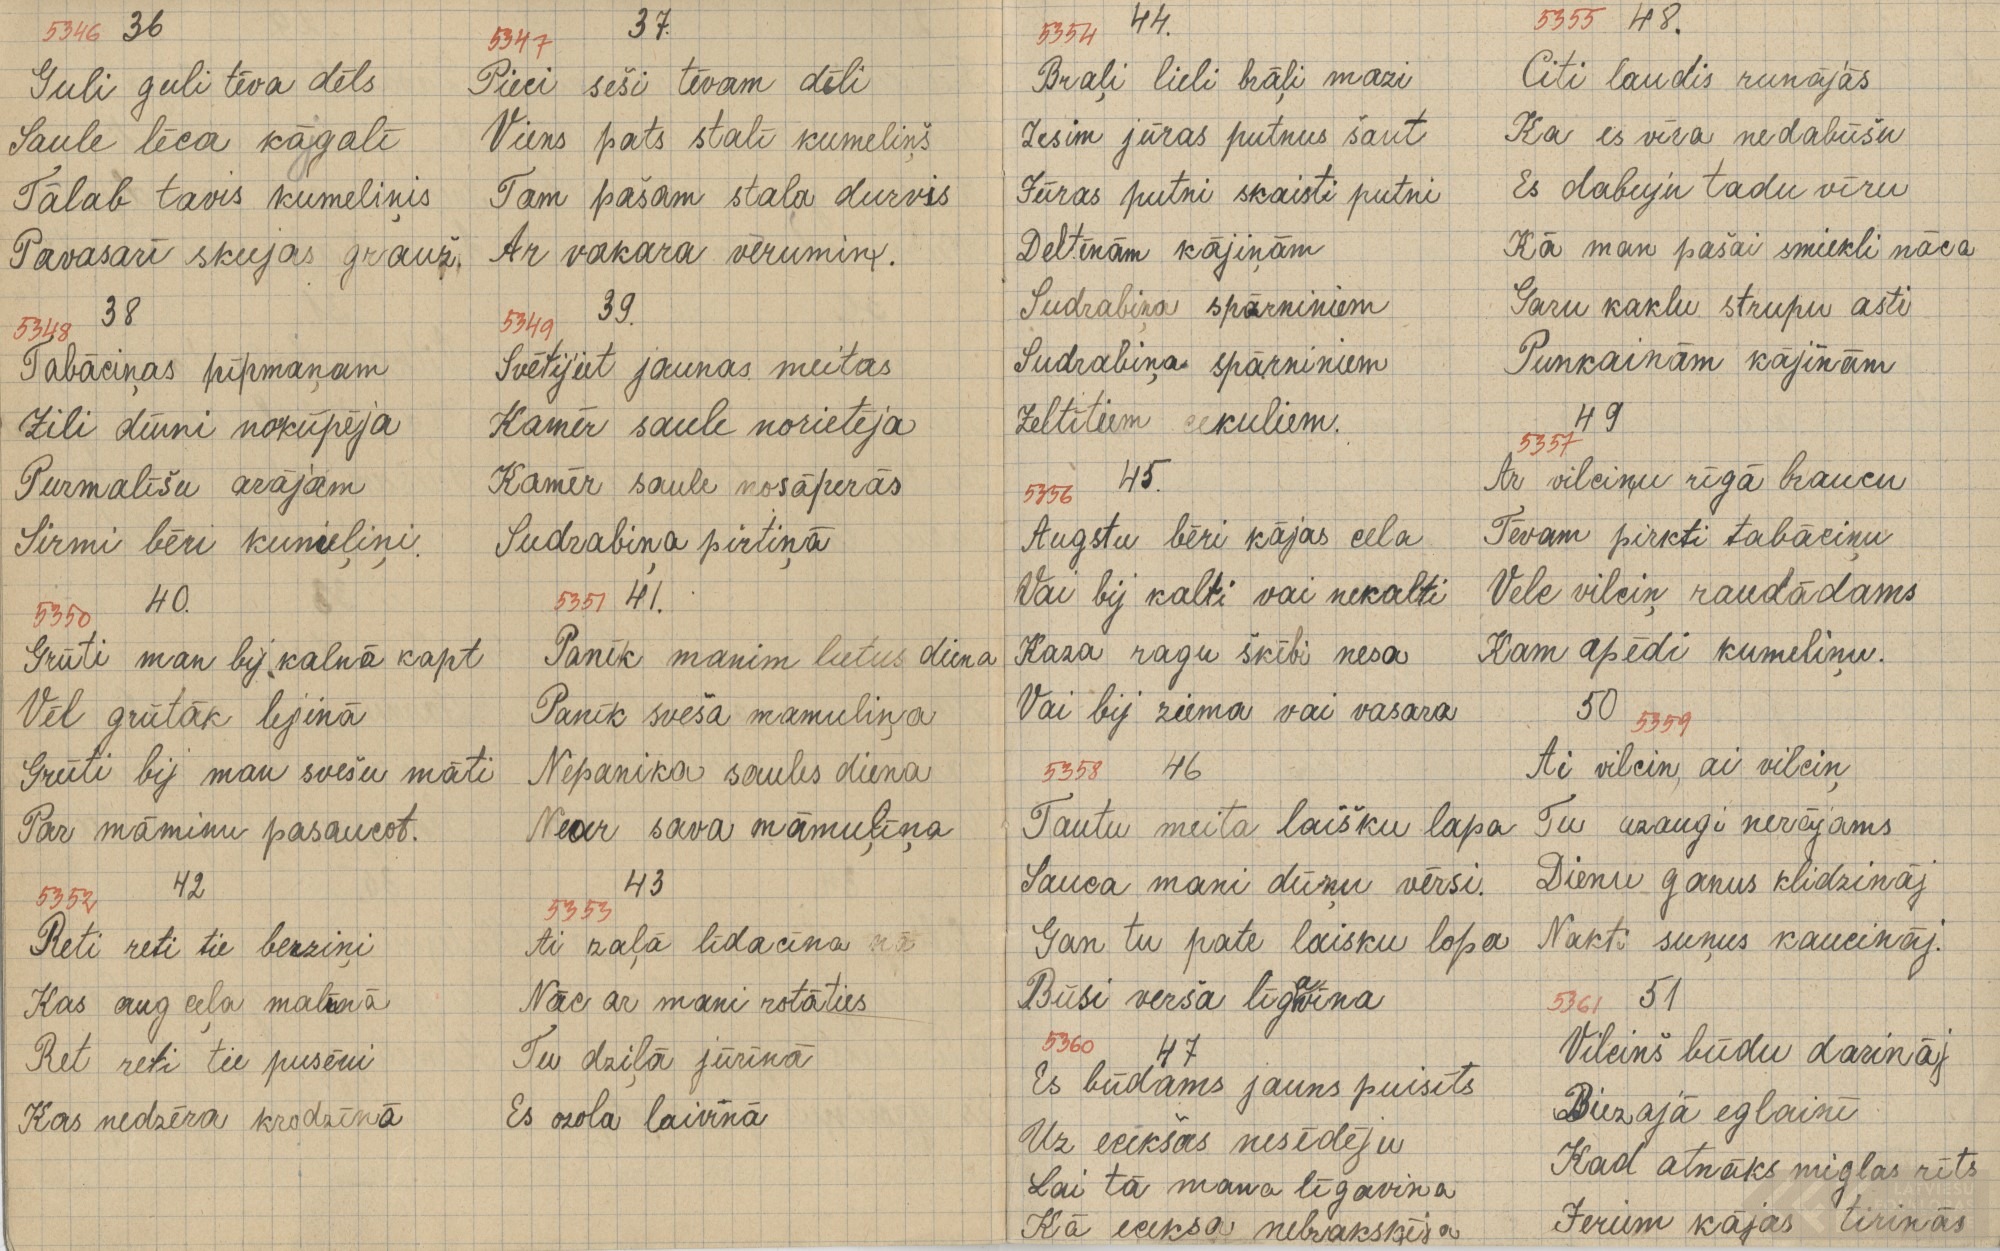 5346 36
Guli guli tēva dēls
Saule lēca kāgalī
Tālab tavis kumeliņis
Pavasarī skujas grauž.
5347 37.
Pieci seši tēvam dēli
Viens pats stalī kumeliņš
Tam pašam staļa durvis
Ar vakara vērumiņ.
5348 38
Tabāciņas pīpmaņam
Zili dūmi nokūpēja
Purmalīšu arājam
Sirmi bēri kumeļiņi.
5349 39.
Svētījiet jaunas meitas
Kamēr saule norietēja
Kamēr saule nosāperās
Sudrabiņa pirtiņā
5350 40.
Grūti man bij kalnā kapt
Vēl grūtāk lejinā
Grūti bij man svešu māti
Par māminu pasaucot.
5351 41.
Panīk manim lietus diena
Panīk sveša mamuliņa
Nepanika saules diena
Near sava māmuļiņa
5352 42
Reti reti tie berziņi
Kas aug ceļa maliņā
Ret reti tie pusēni
Kas nedzēra krodzīnā
5353 43
Ai zaļā līdacīna
Nāc ar mani rotāties
Tu dziļā jūrīnā
Es ozola laivīnā
5354 44.
Braļi lieli brāļi mazi
Iesim jūras putnus šaut
Jūras putni skaisti putni
Deltēnām kājiņām
Sudrabiņa spārniniem
Sudrabiņa spārniniem
Zeltītiem cekuliem.
5356 45.
Augstu bēri kājas cela
Vai bij kalti vai nekalti
Kaza ragu škībi nesa
Vai bij ziema vai vasara
5358 46
Tautu meita laišku lapa
Sauca mani dūņu vērsi.
Gan tu pate laisku lopa
Būsi verša līgavīna
5360 47
Es būdams jauns puisīts
Uz ecekšas nesēdēju
Lai tā mana līgavina
Kā eceksa nebrakskēja
5355 48.
Citi laudis runājās
Ka es vīra nedabūšu
Es dabuju tadu vīru
Kā man pašai smiekli nāca
Garu kaklu strupu asti
Punkainām kājīnām
5357 49
Ar vilciņu rīgā braucu
Tēvam pirkti tabāciņu
Velc vilciņ raudādams
Kam apēdi kumeliņu.
50 5359
Ai vilciņ ai vilciņ
Tu uzaugi nerājams
Dienu ganus klidzināj
Nakti suņus kaucināj.
5361 51
Vilciņš būdu darināj
Biezajā eglainē
Kad atnāks miglas rīts
Jerūm kājas tirinās